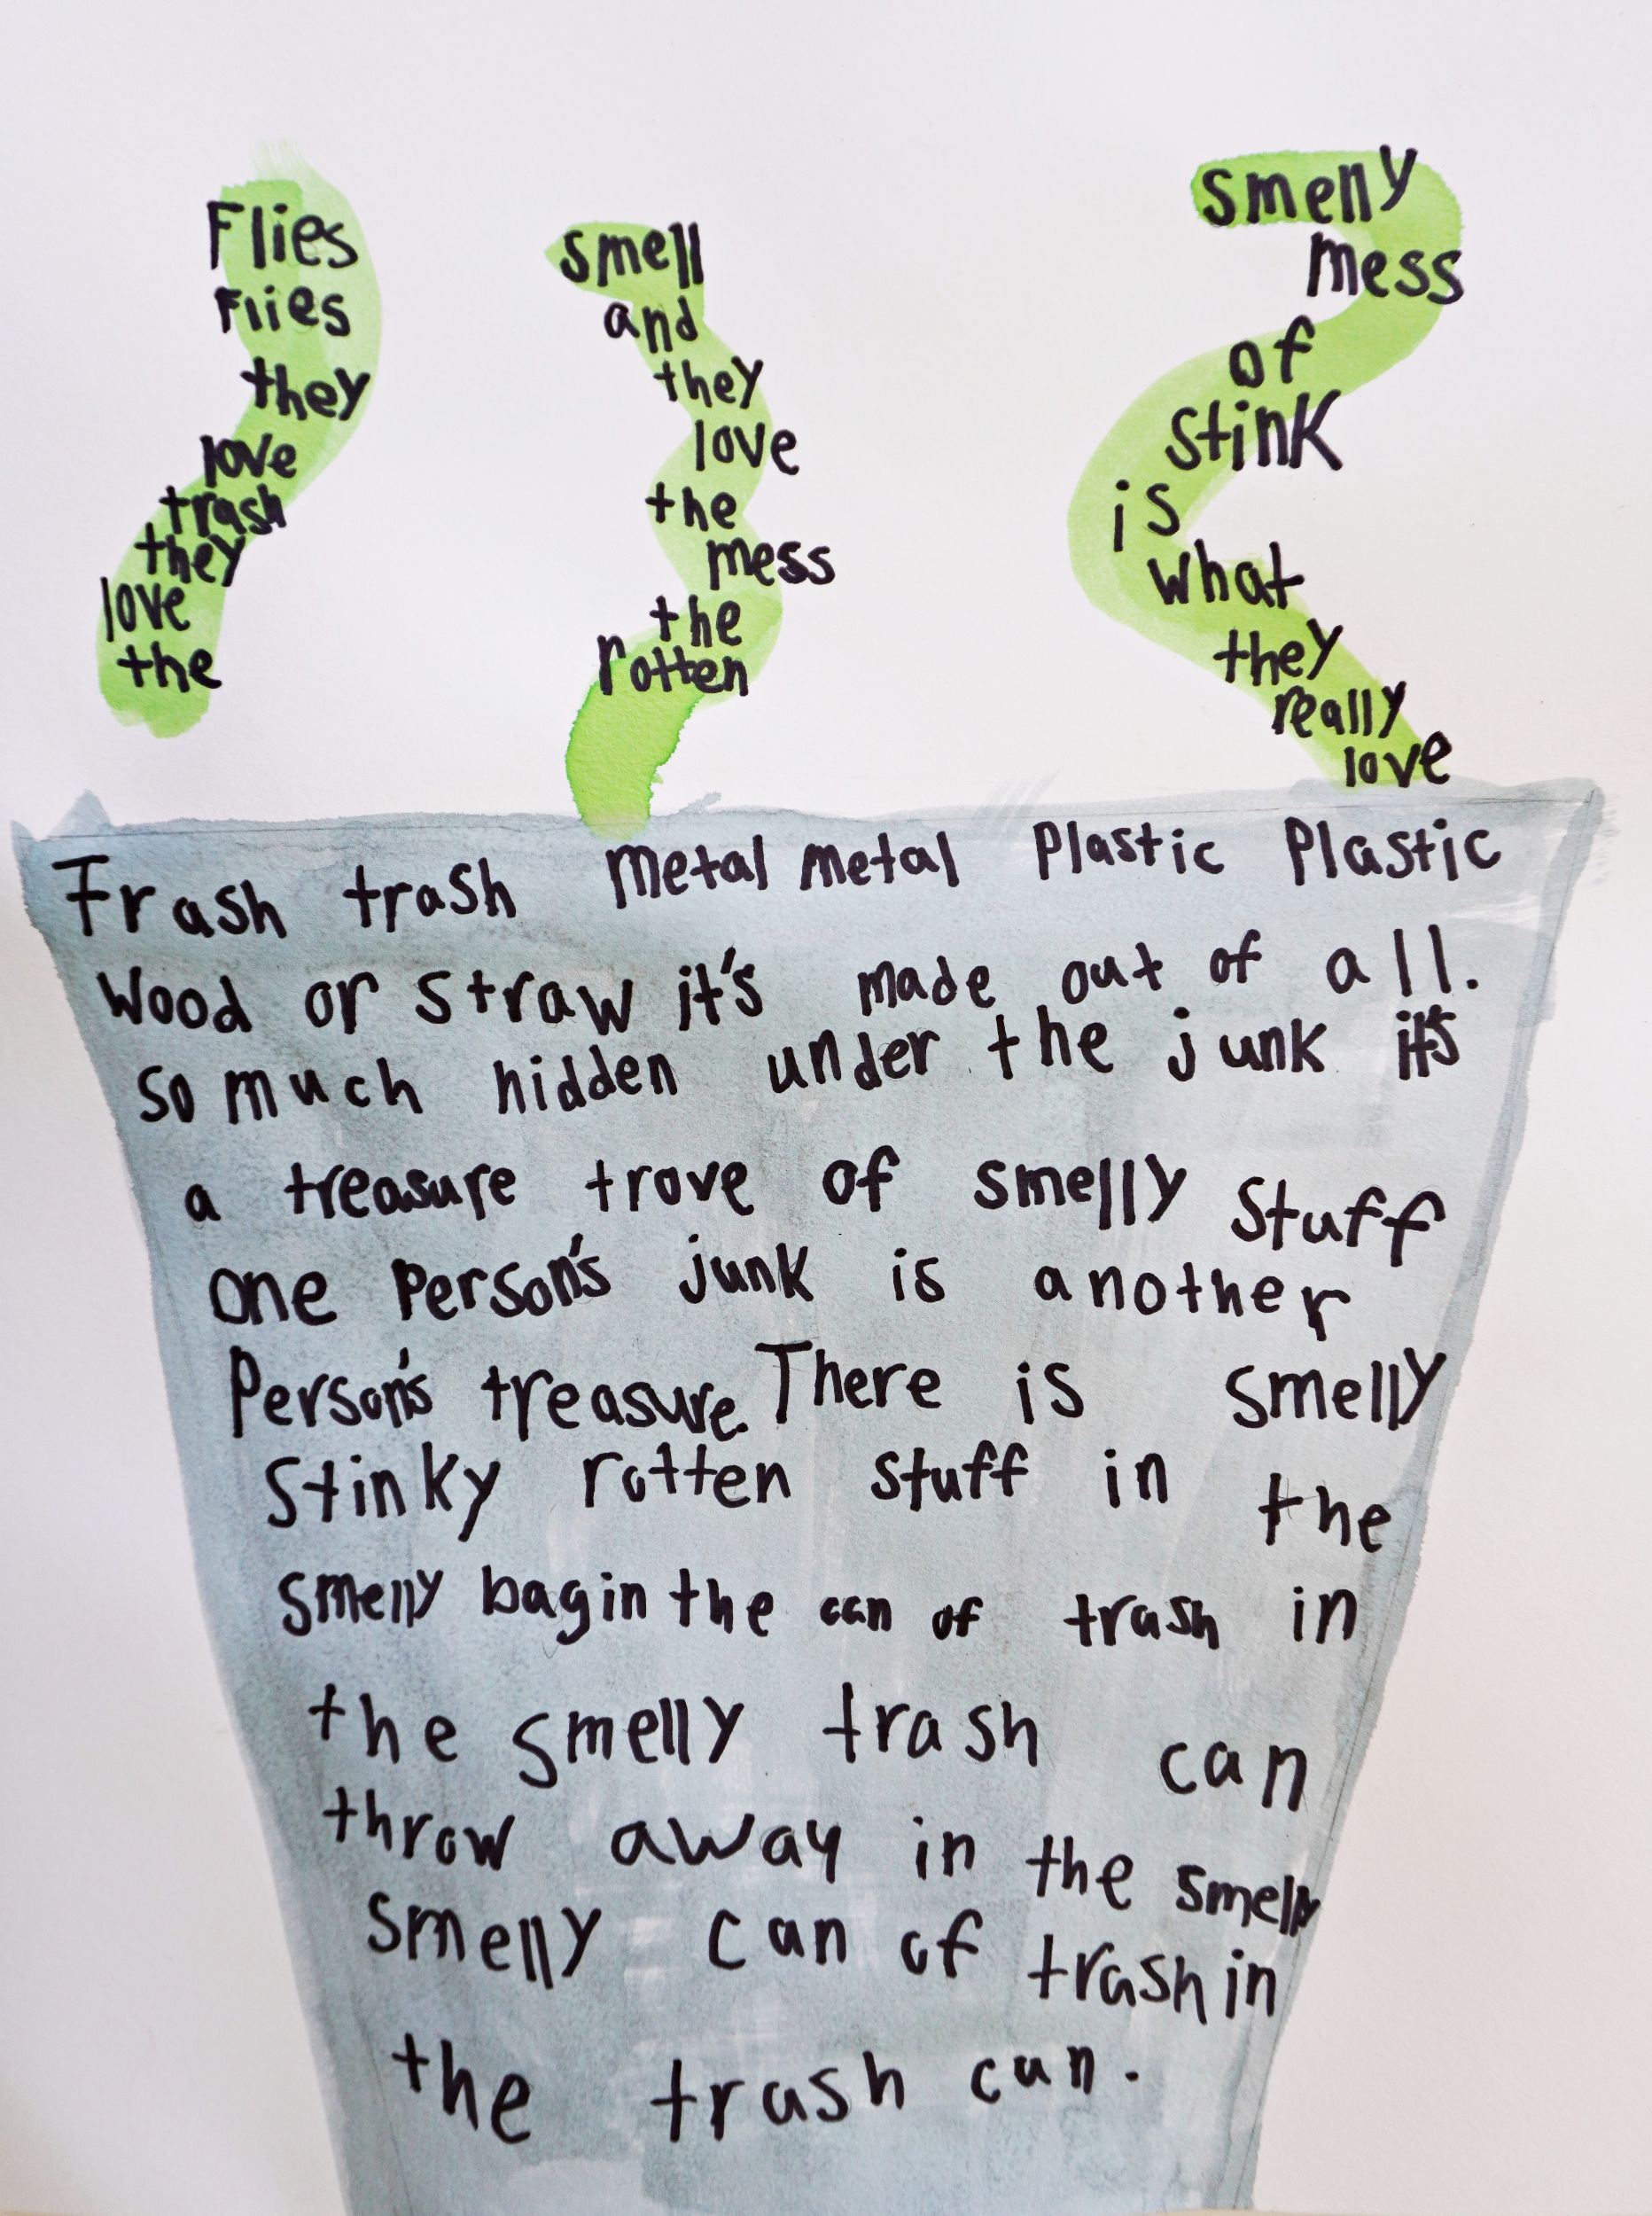 Flies
Flies
they
love
trash
they
love
the
smell
and
they
love
the
mess
the
rotten
smelly
mess
of
stink
is
what
they
really
love
Trash trash metal metal Plastic Plastic
Wood or straw it's made out of all.
so much hidden under the junk it's
a treasure trove of smelly stuff
one Person's junk is another
Person's treasure. There is smelly
stinky rotten stuff in the
smelly bag in the can of trash in
the smelly trash can
throw away in the smelly
smelly can of trash in
the trash can.